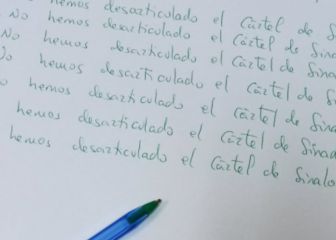 hemos desarticulado el Cártel de S
No hemos desarticulado el Cártel de Sin
No hemos desarticulado el Cártel de Sin
No hemos desarticulado el Cártel de S
No hemos desarticulado el Cártel de Sina
hemos desarticulado el Cártel de Sina
hemos desarticulado el Cártel de Sinalo